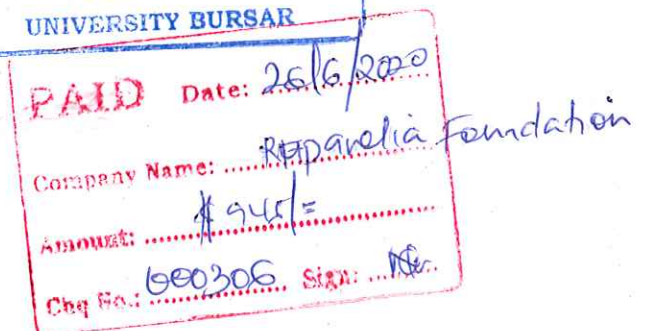 UNIVERSITY BURSAR
PAID Date: 26/6/2020
Company Name: Foundation
Amount: $ 945/=
Chq No.: 000306 Sign: